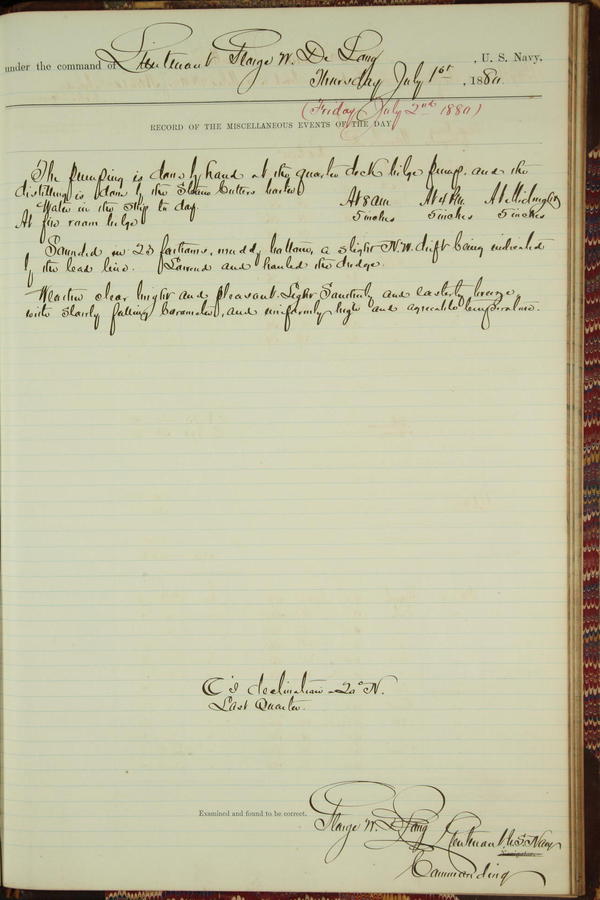 under the command of Lieutenant George W. De Long, U. S. Navy,
Thursday July 1st, 1880.
(Friday July 2nd 1880)
RECORD OF THE MISCELLANEOUS EVENTS OF THE DAY
The pumping is done by hand at the quarter deck bilge pump, and the
distilling is done by the Steam Cutters boiler
Water in the ship to day. At 8 am At 4 P.m. At Midnight
At fire room bilge 5 inches 5 inches 5 inches
Sounded in 23 fathoms, muddy bottom, a slight N.W. drift being indicated
by the lead line. Lowered and hauled the dredge.
Weather clear bright and pleasant. Light Southerly and easterly breeze
with slowly falling barometer, and uniformly high and agreeable temperature.
☾'s declination 20° N.
Last Quarter.
Examined and found to be correct.
George W. De Long Lieutenant U.S. Navy
Navigator.
Commanding